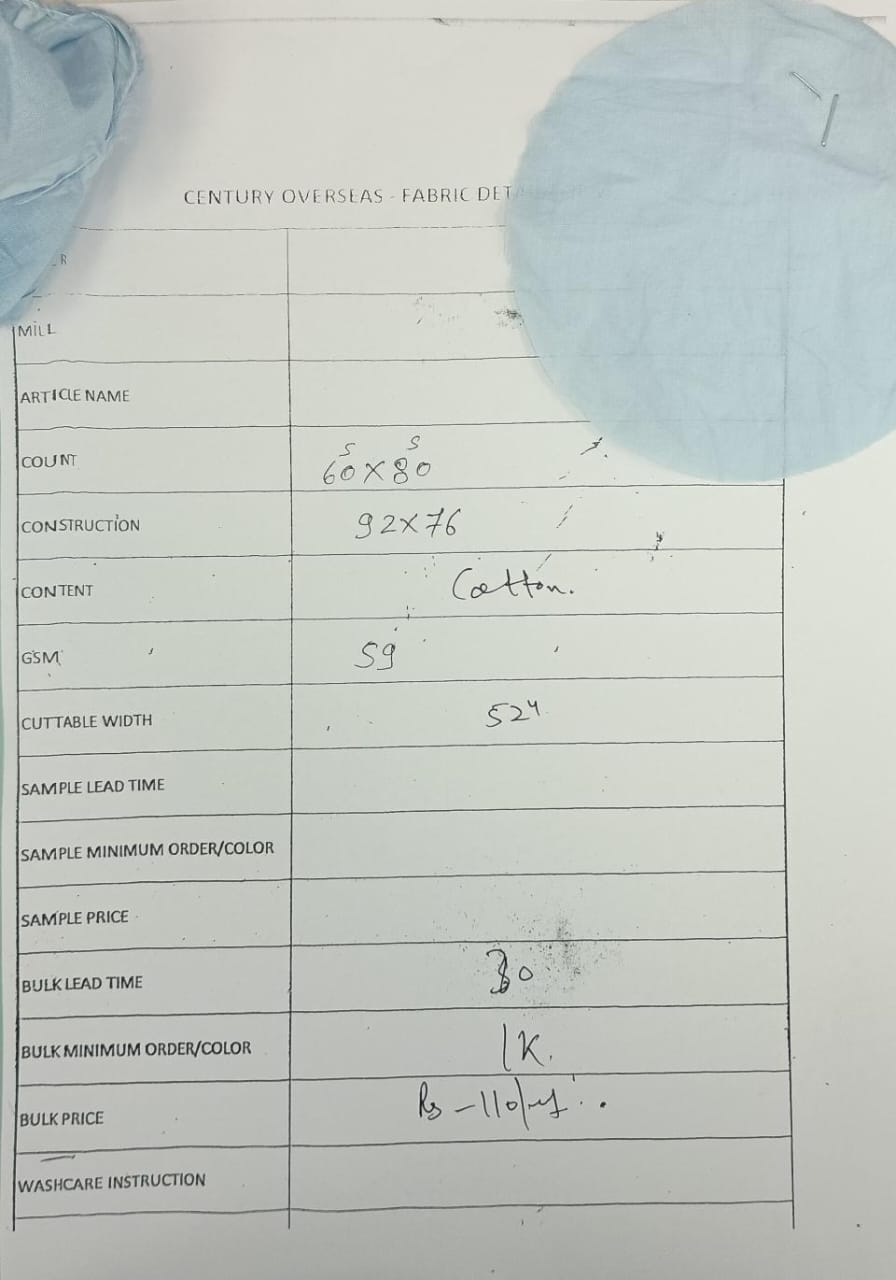 CENTURY OVERSEAS - FABRIC
MILL
ARTICLE NAME
COUNT 60s X 80s
CONSTRUCTION 92X76
CONTENT Cotton.
GSM 59
CUTTABLE WIDTH 52"
SAMPLE LEAD TIME
SAMPLE MINIMUM ORDER/COLOR
SAMPLE PRICE
BULK LEAD TIME 30
BULK MINIMUM ORDER/COLOR 1K.
BULK PRICE Rs -110/
WASHCARE INSTRUCTION